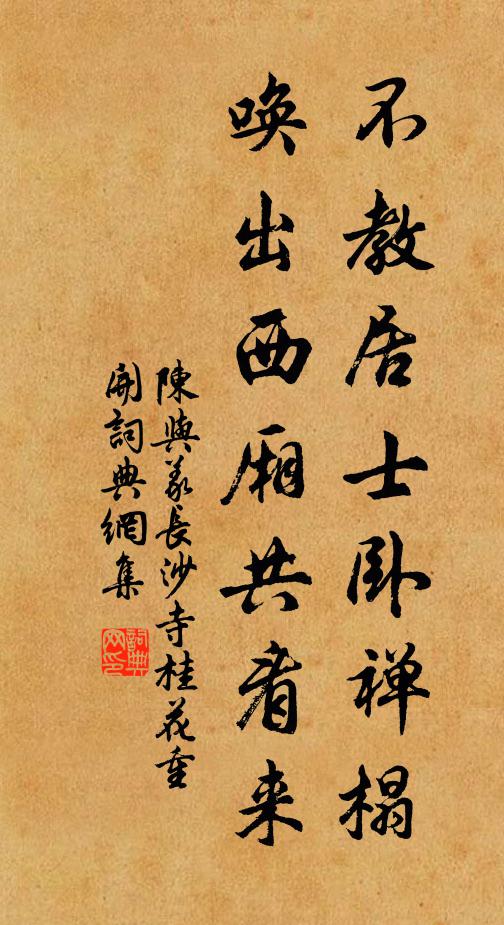 不教居士卧禅榻
唤出西厢共看来
陳與義長沙寺桂花重
開詞典網集
詞典網印